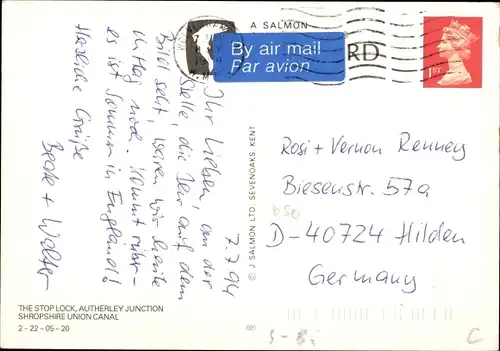 A SALMON
By air mail
Par avion
RD
1ST
7.7.94
Ihr Lieben, an der
Stelle, die Ihr auf dem
Bild seht, waren wir heute
Mittag
es ist Sommer in England!
Herzliche Grüße
Beate + Walter
© J SALMON LTD. SEVENOAKS. KENT
Rosi + Vernon Renney
Biesenstr. 57a
D-40724 Hilden
Germany
THE STOP LOCK, AUTHERLEY JUNCTION
SHROPSHIRE UNION CANAL
2 – 22 – 05 – 20
001
C